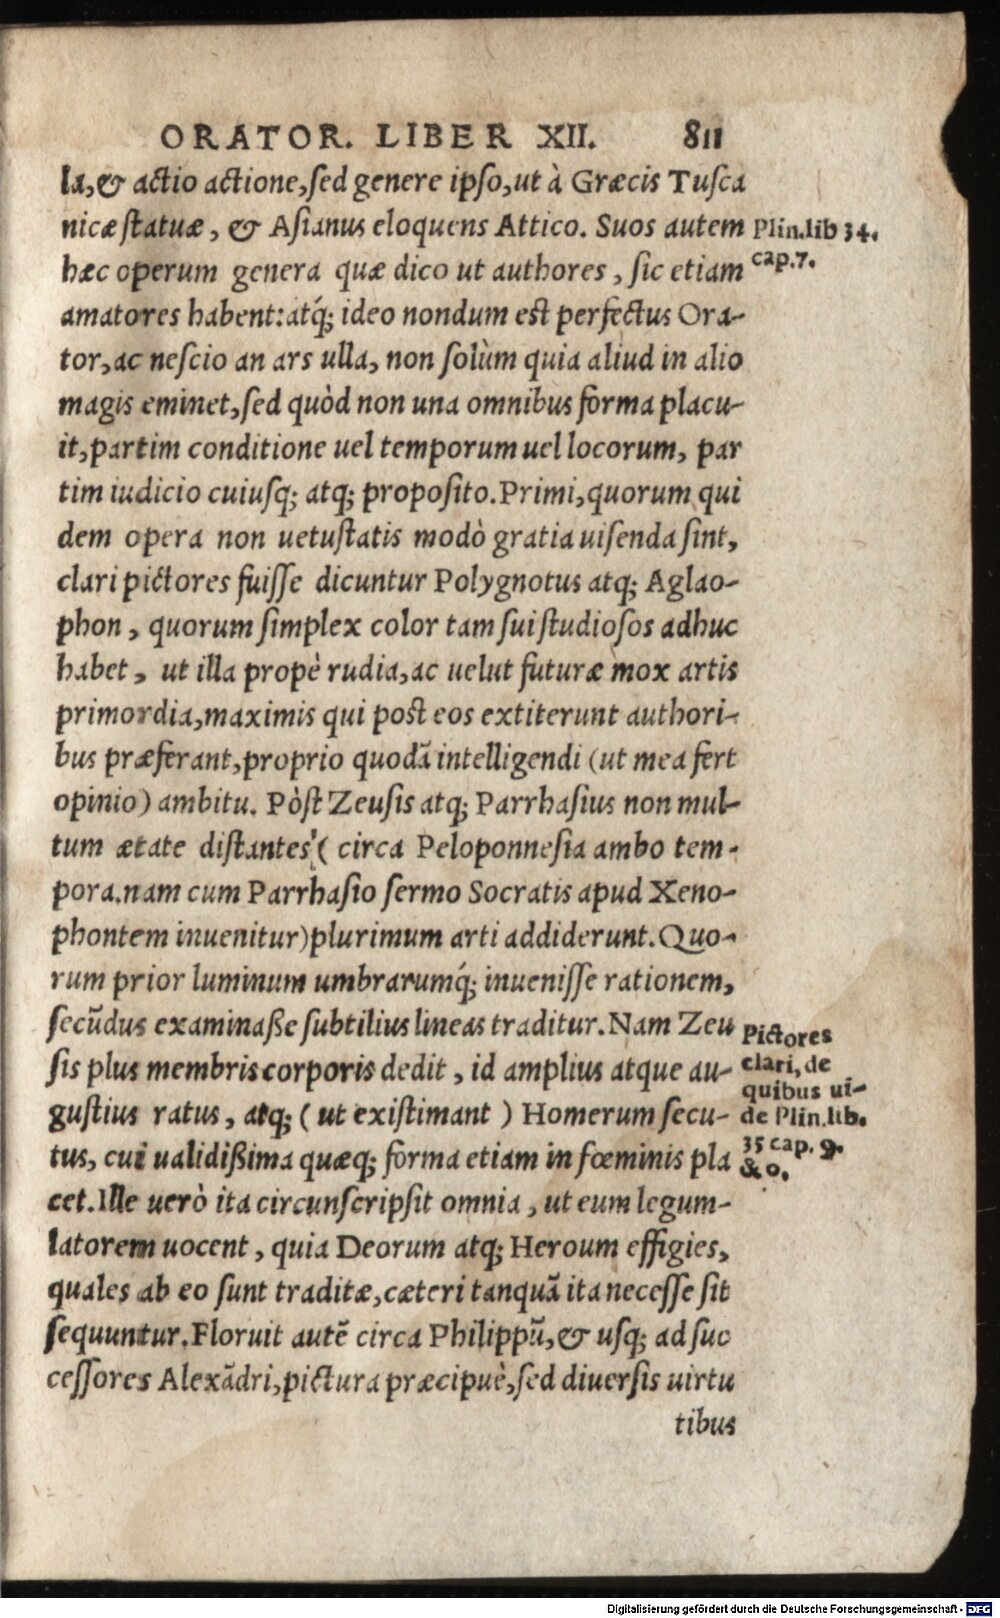 ORATOR. LIBER XII. 811
la,& actio actione,sed genere ipso,ut à Græcis Tusca
nicæ statuæ, & Asianus eloquens Attico. Suos autem
hæc operum genera quæ dico ut authores, sic etiam
amatores habent:atq́; ideo nondum est perfectus Ora-
tor,ac nescio an ars ulla, non solùm quia aliud in alio
magis eminet,sed quòd non una omnibus forma placu-
it,partim conditione uel temporum uel locorum, par
tim iudicio cuiusq; atq; proposito.Primi,quorum qui
dem opera non uetustatis modò gratia uisenda sint,
clari pictores fuisse dicuntur Polygnotus atq; Aglao-
phon, quorum simplex color tam sui studiosos adhuc
habet, ut illa propè rudia,ac uelut futuræ mox artis
primordia,maximis qui post eos extiterunt authori-
bus præferant,proprio quodã intelligendi (ut mea fert
opinio) ambitu. Pòst Zeusis atq; Parrhasius non mul-
tum ætate distantes ( circa Peloponnesia ambo tem-
pora.nam cum Parrhasio sermo Socratis apud Xeno-
phontem inuenitur)plurimum arti addiderunt.Quo-
rum prior luminum umbrarumq́; inuenisse rationem,
secũdus examinaße subtilius lineas traditur.Nam Zeu
sis plus membris corporis dedit, id amplius atque au-
gustius ratus, atq; ( ut existimant ) Homerum secu-
tus, cui ualidißima quæq; forma etiam in fœminis pla
cet.Ille uerò ita circunscripsit omnia, ut eum legum-
latorem uocent, quia Deorum atq; Heroum effigies,
quales ab eo sunt traditæ,cæteri tanquã ita necesse sit
sequuntur.Floruit autẽ circa Philippũ,& usq; ad suc
cessores Alexãdri,pictura præcipuè,sed diuersis uirtu
tibus
Plin.lib 34.
cap.7.
Pictores
clari, de
quibus ui-
de Plin.lib.
35 cap. 9.
& 0.
Digitalisierung gefördert durch die Deutsche Forschungsgemeinschaft - DFG